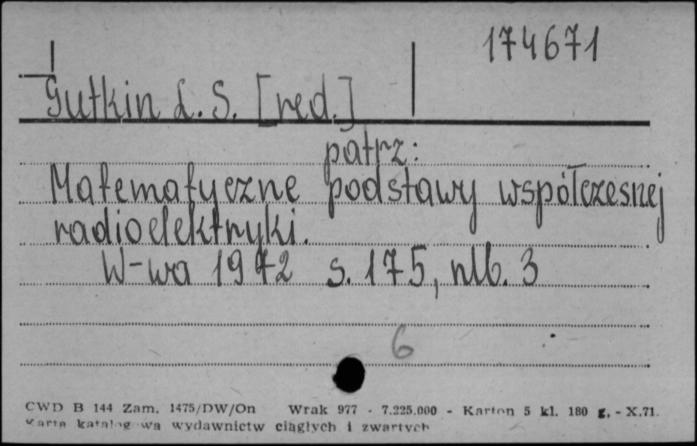 174671
Gutkin L. S. [red.]
patrz:
Matematyczne podstawy współczesnej
radioelektryki.
W-wa 1972 s. 175, nlb. 3
6
CWD B 144 Zam. 1475/DW/On Wrak 977 - 7.225.000 - Karton 5 kl. 180 g. - X.71.
Karta katalogowa wydawnictw ciągłych i zwartych